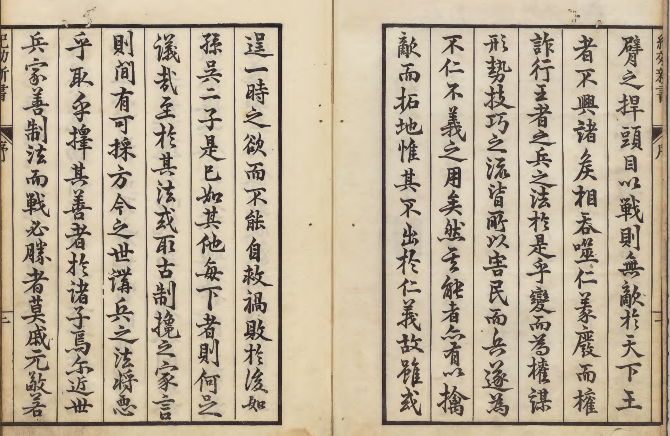 紀効新書
序
二
臂之捍頭目以戰則無敵於天下王
者不興諸矦相吞噬仁義廢而權
詐行王者之兵之法於是乎變而為權謀
形勢技巧之流皆所以害民而兵遂為
不仁不義之用矣然其能者亦有以擒
敵而拓地惟其不出於仁義故雖或
逞一時之欲而不能自救禍敗於後如
孫吳二子是已如其他每下者則何足
議哉至於其法或取古制攙之家言
則間有可採方今之世講兵之法將惡
乎取乎擇其善者於諸子焉尒近世
兵家善制法而戰必勝者莫戚元敬若
紀効新書
序
二